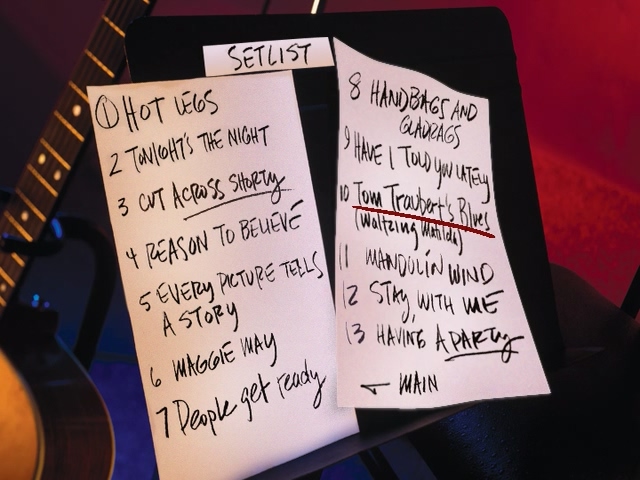 SETLIST
1 HOT LEGS
2 TONIGHT'S THE NIGHT
3 CUT ACROSS SHORTY
4 REASON TO BELIEVE
5 EVERY PICTURE TELLS
A STORY
6 MAGGIE MAY
7 People get ready
8 HANDBAGS AND
GLADRAGS
9 HAVE I TOLD YOU LATELY
10 Tom Traubert's Blues
(Waltzing Matilda)
11 MANDOLIN WIND
12 STAY WITH ME
13 HAVING A PARTY
MAIN